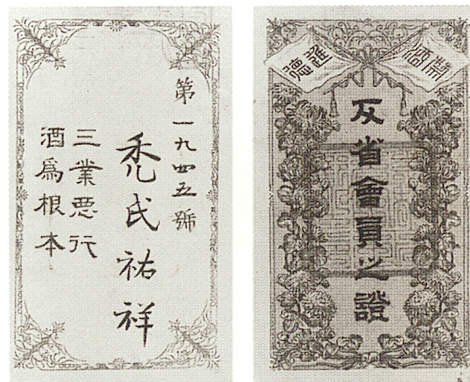 第一九四五號
禿氏祐祥
三業悪行
酒爲根本
禁酒
進德
反省會員之證